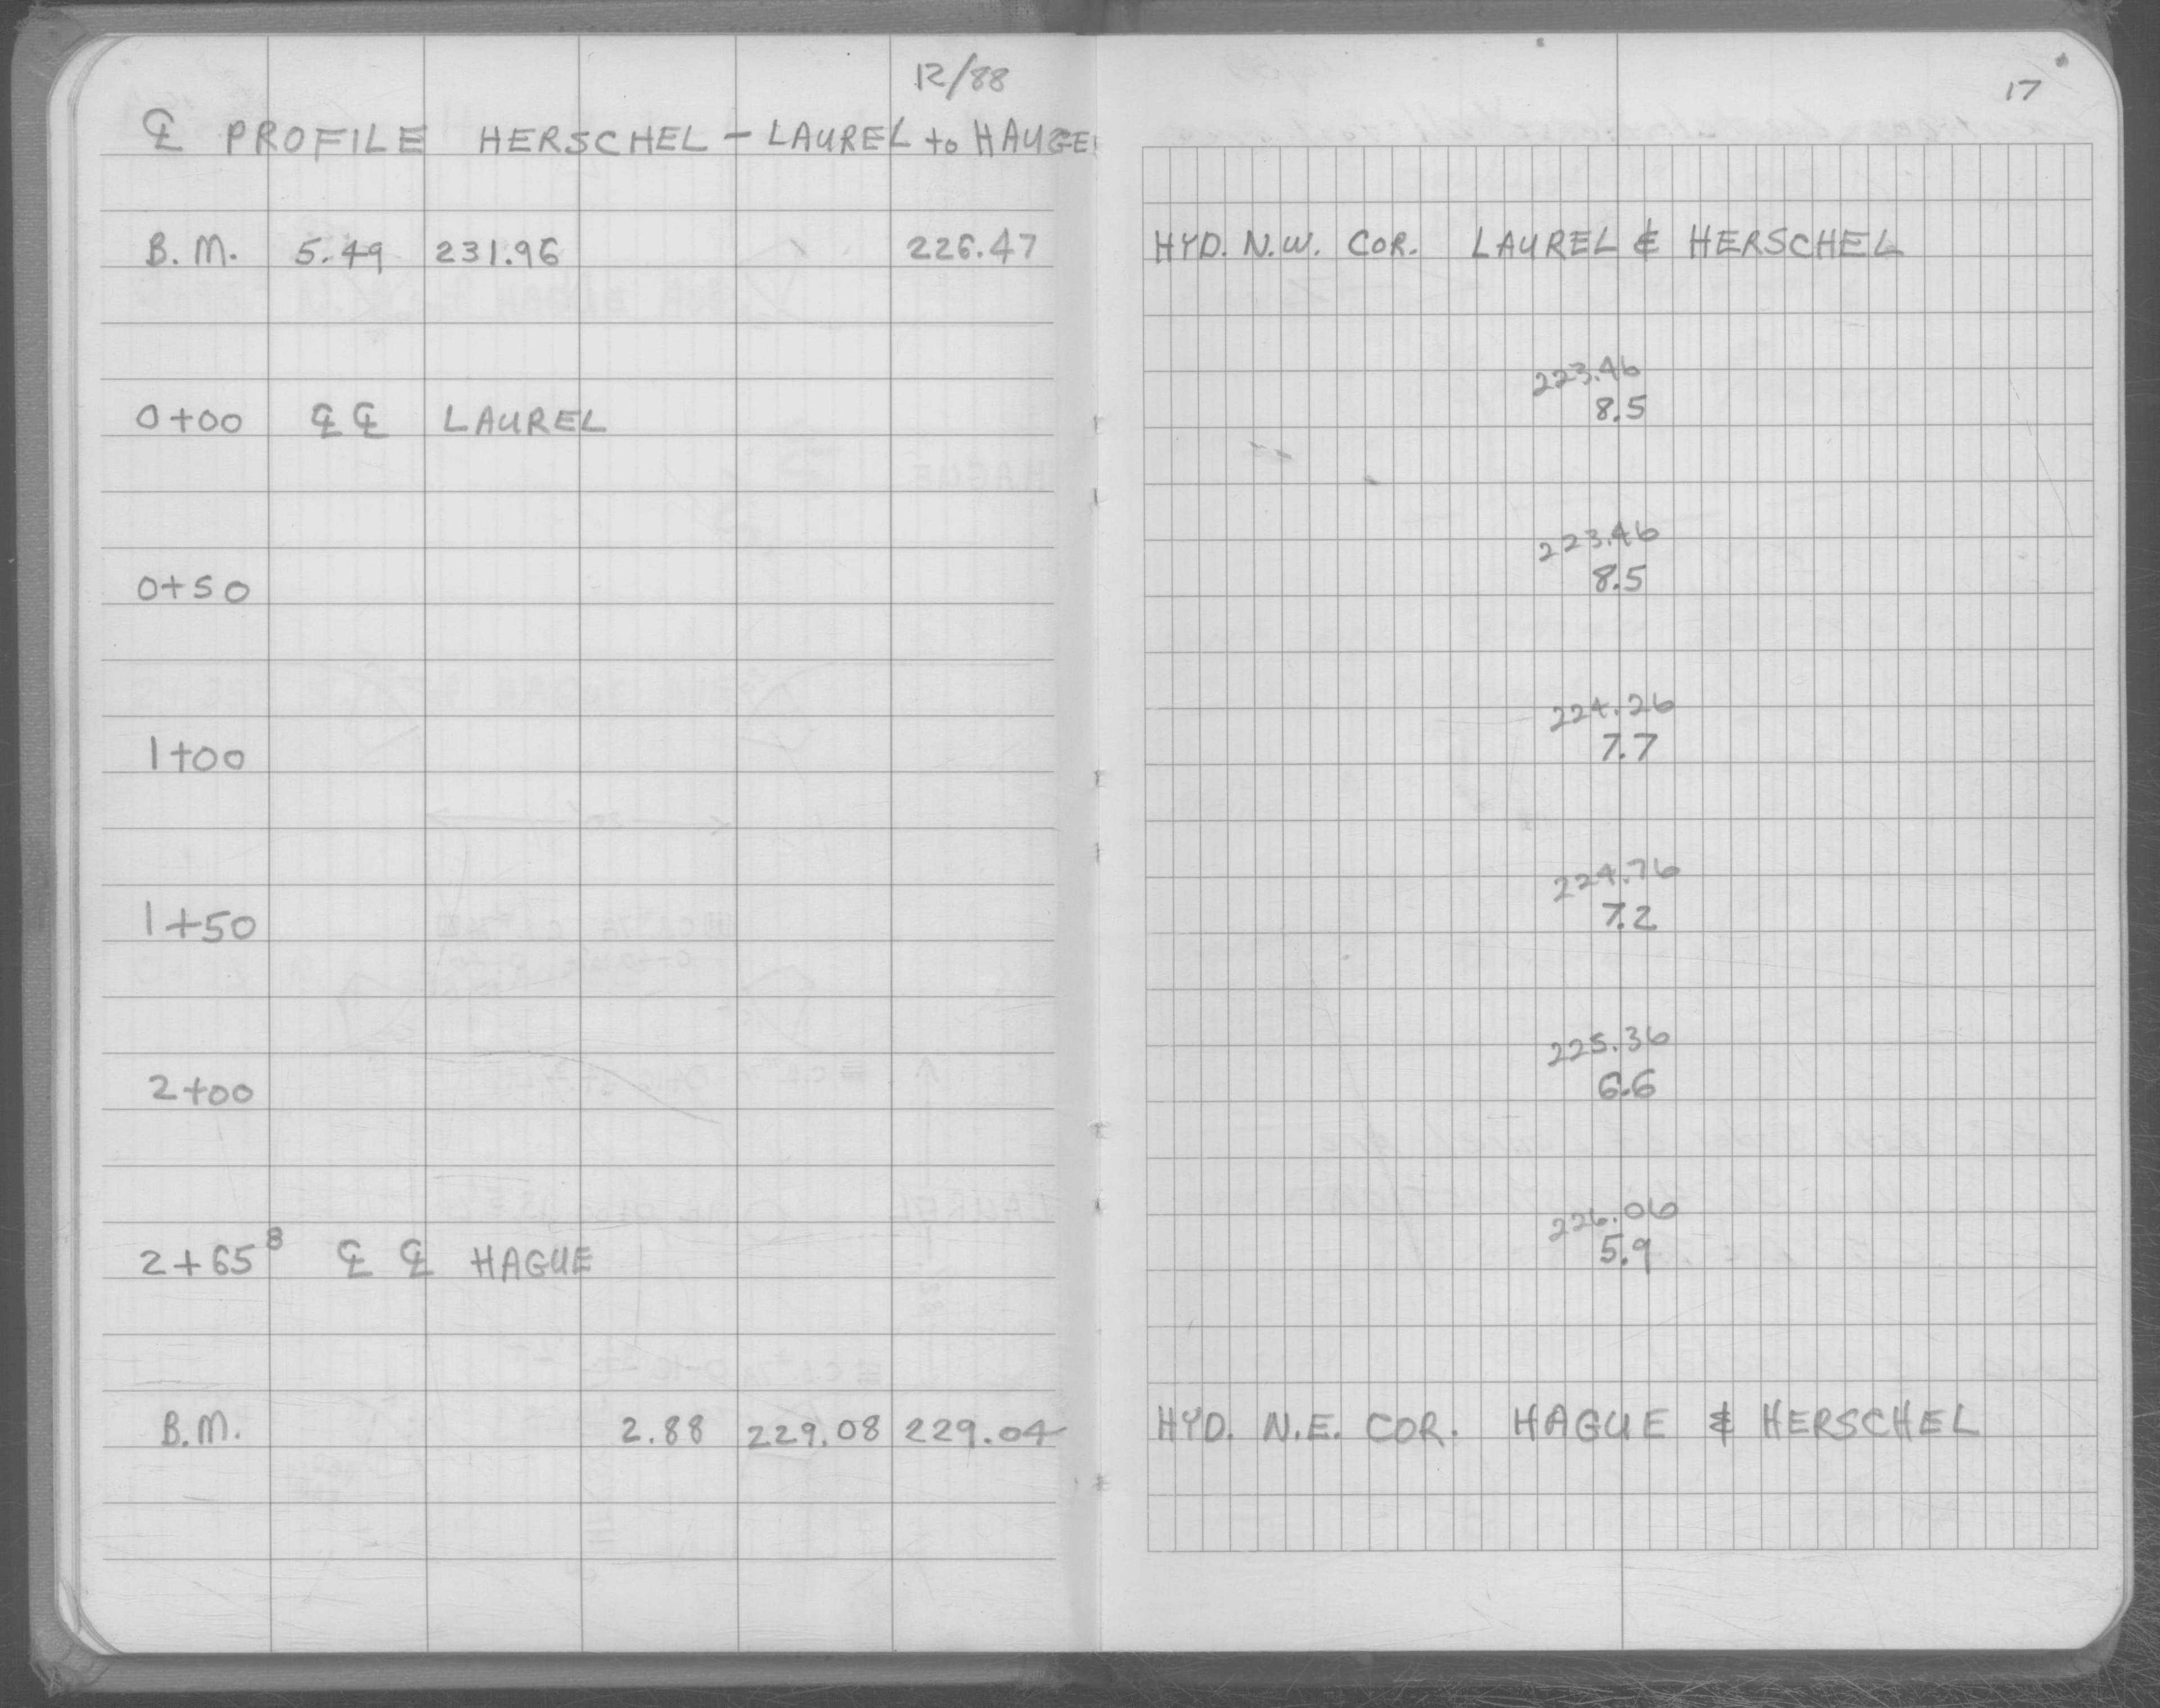 12/88
℄ PROFILE HERSCHEL - LAUREL to HAUGE
B.M. 5.49 231.96 226.47
0+00 ℄ ℄ LAUREL
0+50
1+00
1+50
2+00
2+65⁸ ℄ ℄ HAGUE
B.M. 2.88 229.08 229.04
17
HYD. N.W. COR. LAUREL & HERSCHEL
223.46
8.5
223.46
8.5
224.26
7.7
224.76
7.2
225.36
6.6
226.06
5.9
HYD. N.E. COR. HAGUE & HERSCHEL